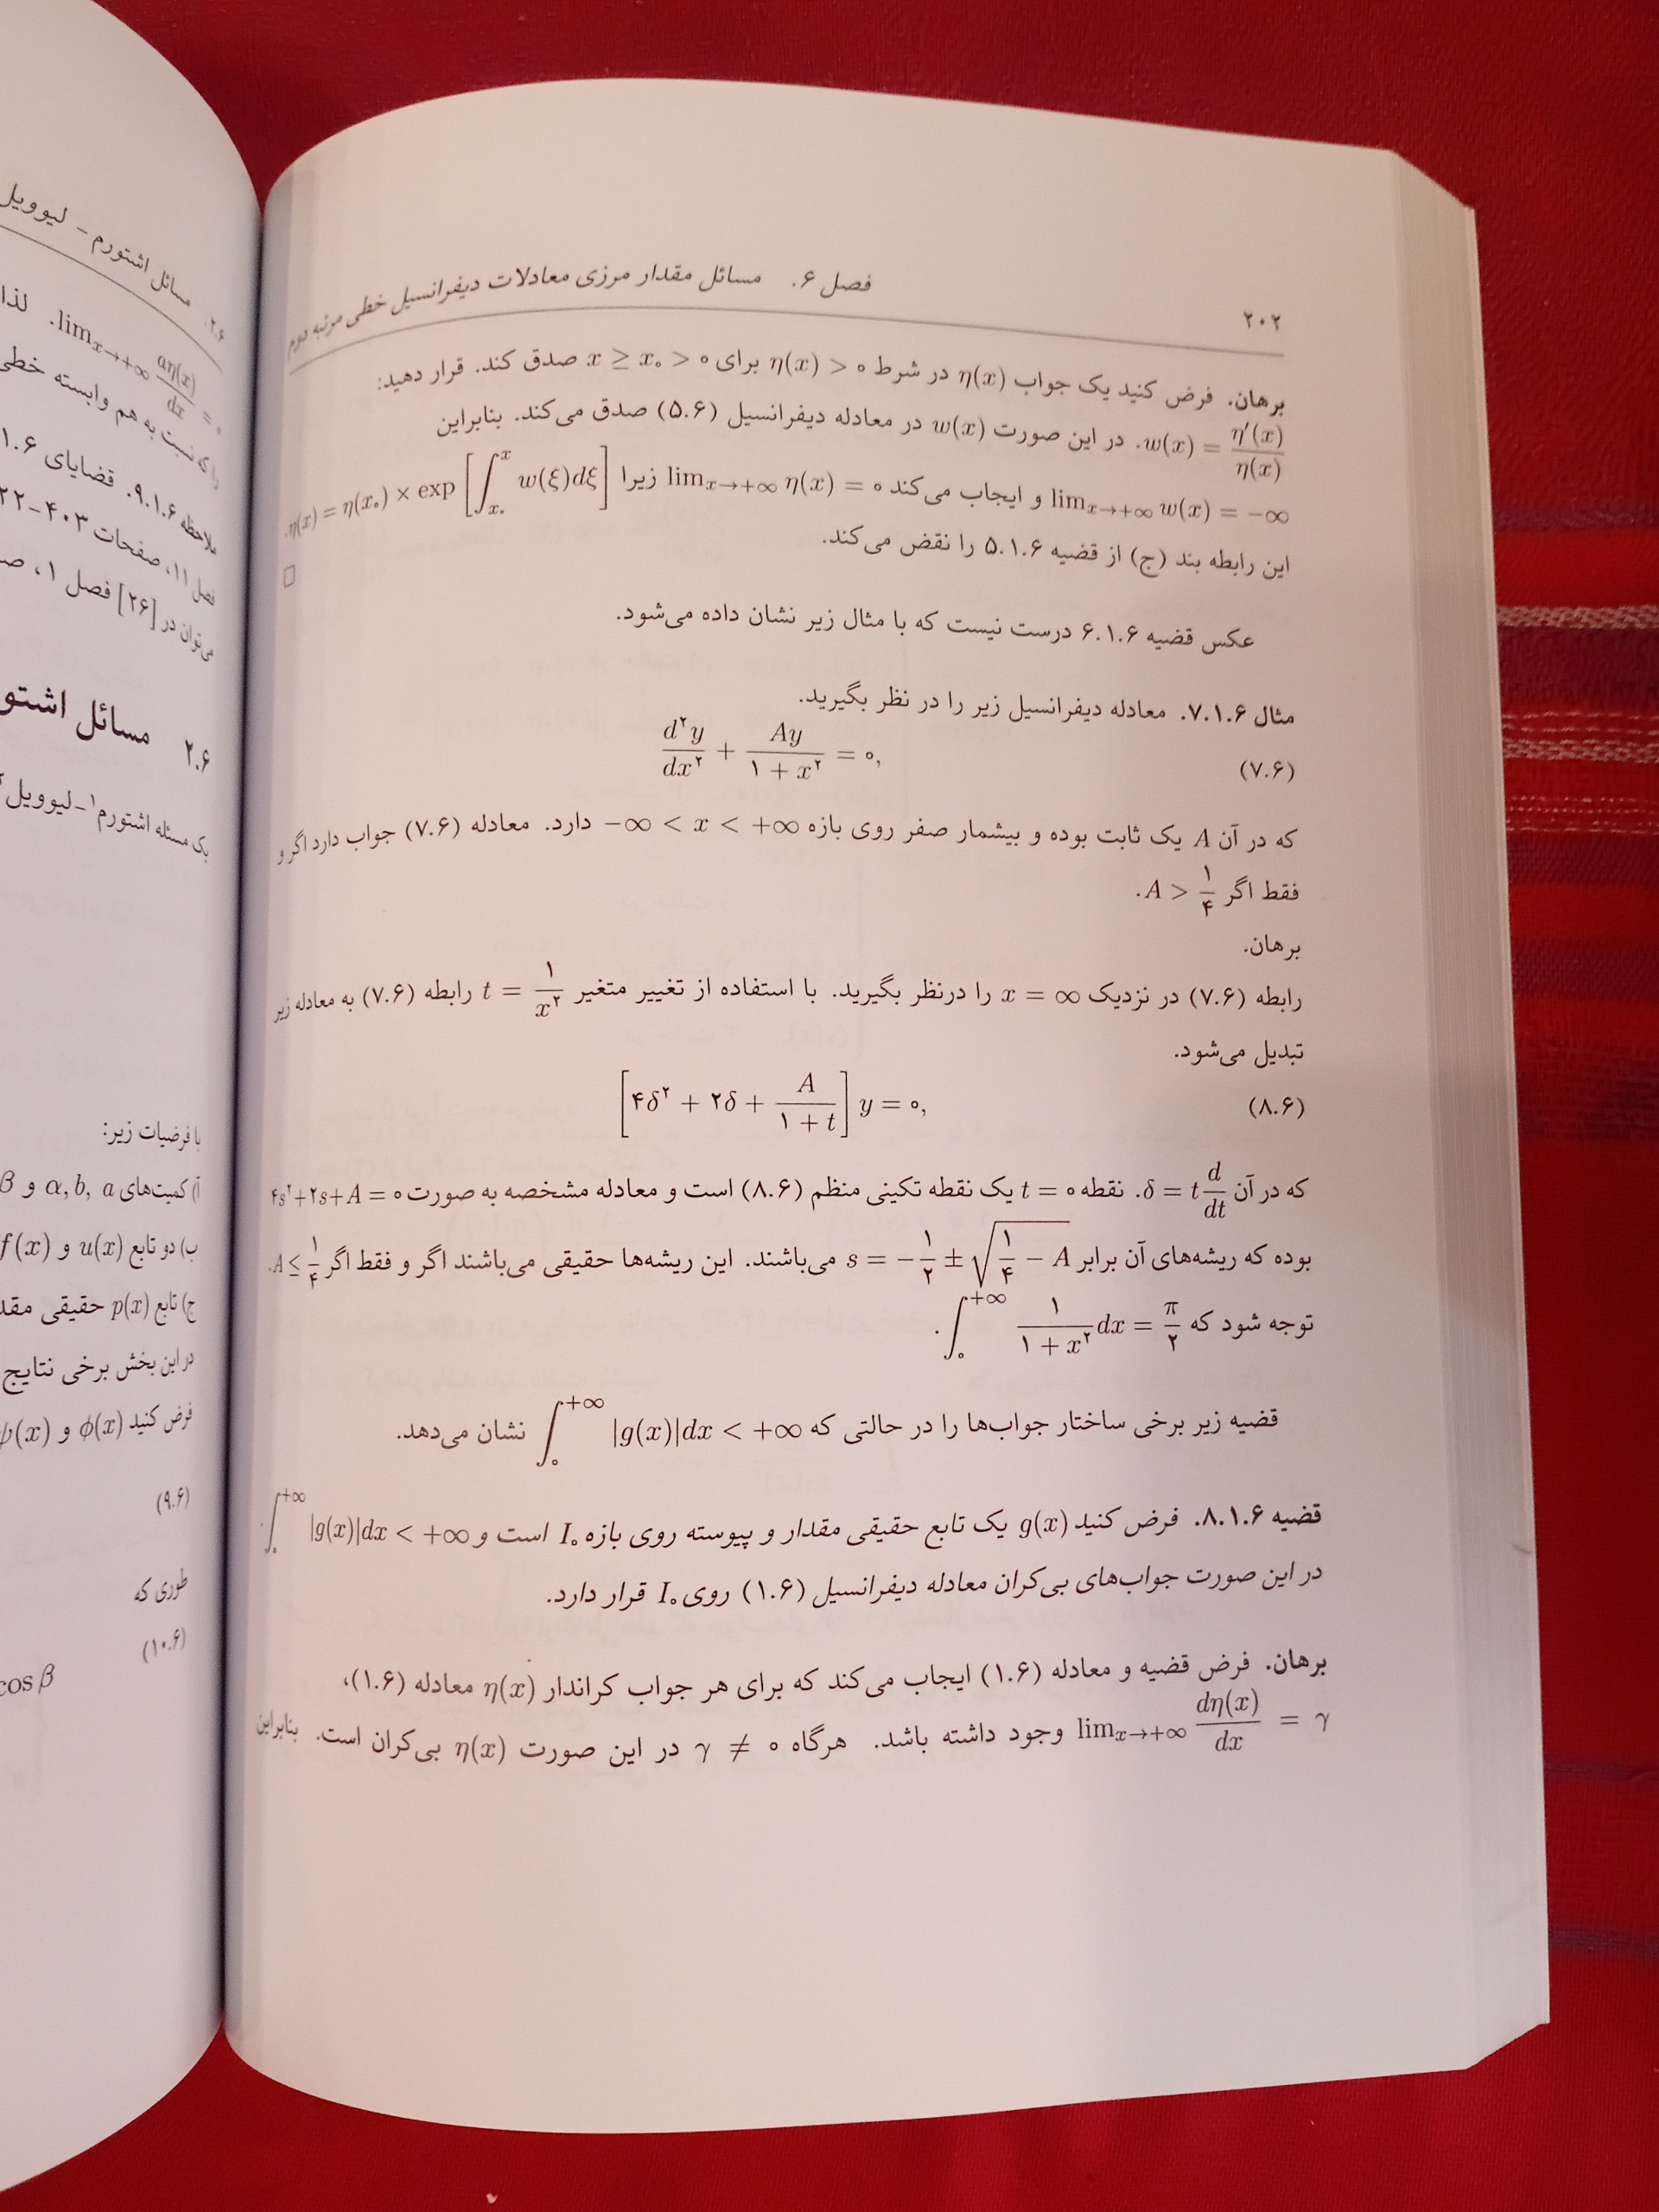 ۲۰۲
فصل ۶. مسائل مقدار مرزی معادلات دیفرانسیل خطی مرتبه دوم
برهان. فرض کنید یک جواب η(x) در شرط η(x) > ۰ برای x ≥ x₀ > ۰ صدق کند. قرار دهید:
w(x) = η′(x)/η(x). در این صورت w(x) در معادله دیفرانسیل (۵.۶) صدق می‌کند. بنابراین
lim_{x→+∞} w(x) = −∞ و ایجاب می‌کند lim_{x→+∞} η(x) = ۰ زیرا η(x) = η(x₀) × exp[∫_{x₀}^{x} w(ξ)dξ].
این رابطه بند (ج) از قضیه ۵.۱.۶ را نقض می‌کند.
□
عکس قضیه ۶.۱.۶ درست نیست که با مثال زیر نشان داده می‌شود.
مثال ۷.۱.۶. معادله دیفرانسیل زیر را در نظر بگیرید.
(۷.۶) d²y/dx² + Ay/(۱ + x²) = ۰,
که در آن A یک ثابت بوده و بیشمار صفر روی بازه −∞ < x < +∞ دارد. معادله (۷.۶) جواب دارد اگر و
فقط اگر A > ۱/۴.
برهان.
رابطه (۷.۶) در نزدیک x = ∞ را درنظر بگیرید. با استفاده از تغییر متغیر t = ۱/x² رابطه (۷.۶) به معادله زیر
تبدیل می‌شود.
(۸.۶) [۴δ² + ۲δ + A/(۱ + t)] y = ۰,
که در آن δ = t d/dt. نقطه t = ۰ یک نقطه تکینی منظم (۸.۶) است و معادله مشخصه به صورت ۴s²+۲s+A = ۰
بوده که ریشه‌های آن برابر s = −۱/۲ ± √(۱/۴ − A) می‌باشند. این ریشه‌ها حقیقی می‌باشند اگر و فقط اگر A ≤ ۱/۴.
توجه شود که ∫_{۰}^{+∞} ۱/(۱ + x²) dx = π/۲.
قضیه زیر برخی ساختار جواب‌ها را در حالتی که ∫_{۰}^{+∞} |g(x)|dx < +∞ نشان می‌دهد.
قضیه ۸.۱.۶. فرض کنید g(x) یک تابع حقیقی مقدار و پیوسته روی بازه I₀ است و ∫_{۰}^{+∞} |g(x)|dx < +∞.
در این صورت جواب‌های بی‌کران معادله دیفرانسیل (۱.۶) روی I₀ قرار دارد.
برهان. فرض قضیه و معادله (۱.۶) ایجاب می‌کند که برای هر جواب کراندار η(x) معادله (۱.۶)،
lim_{x→+∞} dη(x)/dx = γ وجود داشته باشد. هرگاه γ ≠ ۰ در این صورت η(x) بی‌کران است. بنابراین
۲.۶. مسائل اشتورم – لیوویل
lim_{x→+∞} aη(x)/dx = ۰. لذا
را که نسبت به هم وابسته خطی
ملاحظه ۹.۱.۶. قضایای ۱.۶
فصل ۱۱، صفحات ۴۰۳–۲۲
می‌توان در [۲۶] فصل ۱،
۲.۶ مسائل اشتو
یک مسئله اشتورم¹-لیوویل²
با فرضیات زیر:
آ) کمیت‌های α, b, a و β
ب) دو تابع u(x) و f(x)
ج) تابع p(x) حقیقی مقد
در این بخش برخی نتایج
فرض کنید φ(x) و ψ(x)
(۹.۶)
طوری که
(۱۰.۶)
cos β